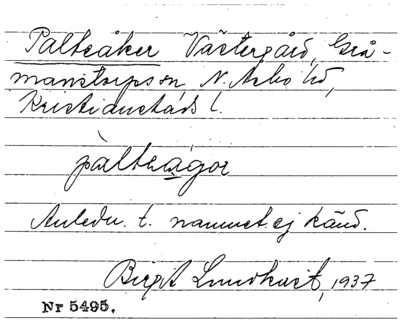 Paltåker Västergård, Grå-
manstorps sn, N. Åsbo hd,
Kristianstads l.
pàltəågər
Anledn. t. namnet ej känd.
Birgit Lundkvist, 1937
Nr 5495.